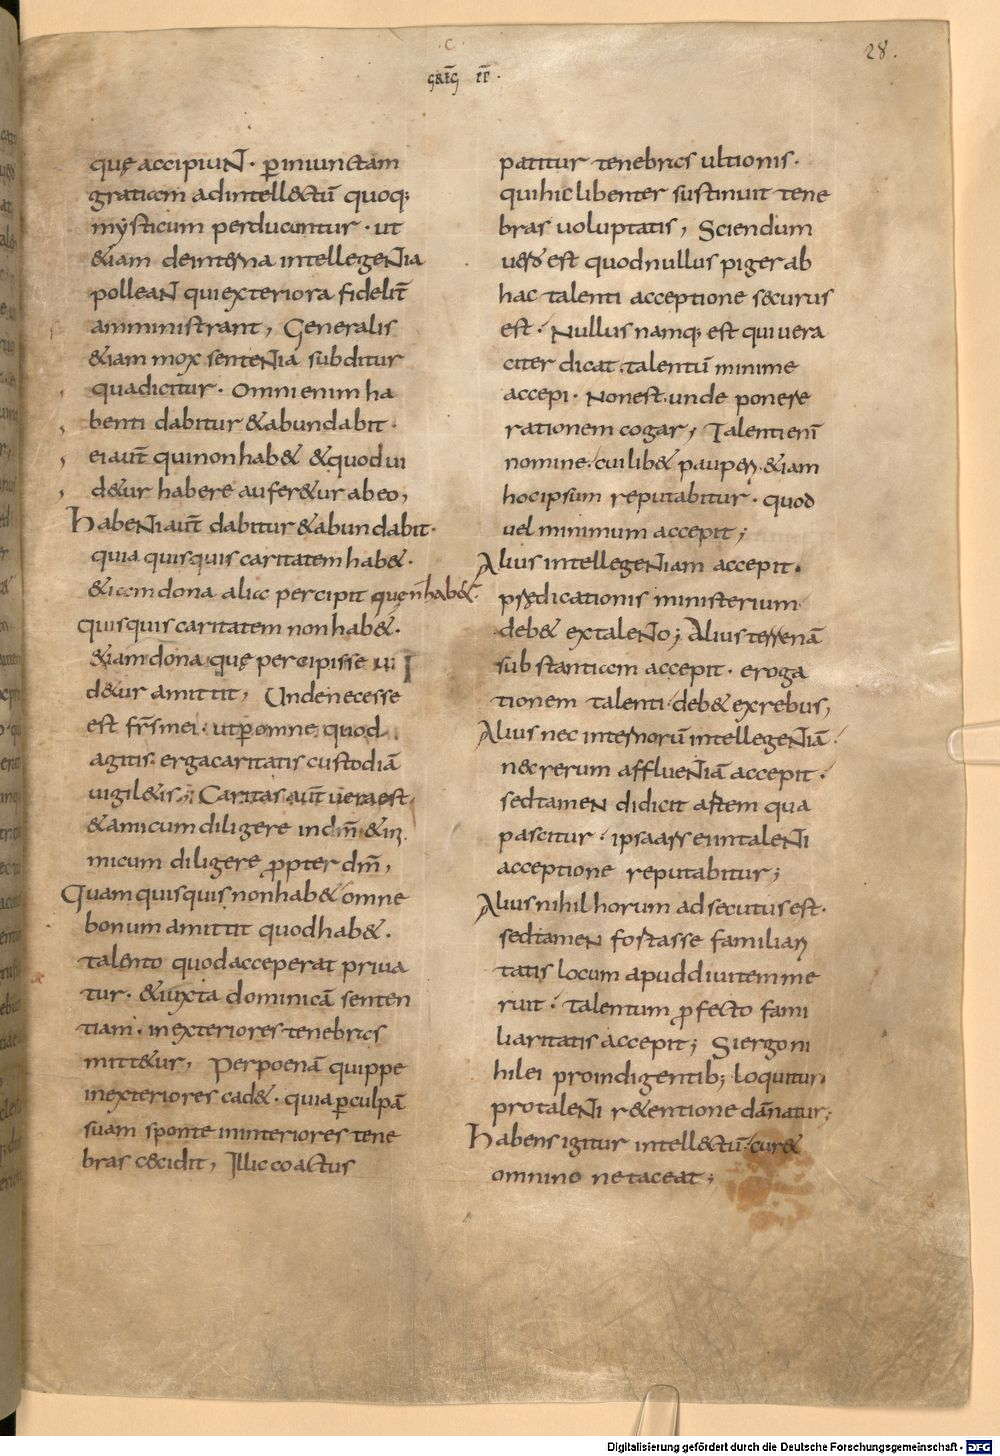 28.
quę accipiuN. p̲ iniunctam
gratiam ad intell&ctū quoq;
mysticum perducuntur. ut
&iam deinterna intellegeNtia
polleaN qui exteriora fidelit̄
amministrant, Generalis
&iam mox senteNtia subditur
qua dicitur. Omni enim ha
benti dabitur &abundabit.
ei aut̄ qui non hab& &quod ui
d&ur habere aufer&ur ab eo,
HabeNti aut̄ dabitur &abundabit.
quia quisquis caritatem hab&.
&iam dona alia percipit quę n̄ hab&.
quisquis caritatem non hab&.
&iam dona quę percipisse ui
d&ur amittit, Unde necesse
est fr̄s mei. ut p̲ omne quod
agitis erga caritatis custodiā
uigil&is; Caritas aut̄ uera est
&amicum diligere in dm̄ &in
imicum diligere ꝓpter dm̄,
Quam quisquis non hab& omne
bonum amittit quod hab&.
talento quod acceperat priua
tur. &iuxta dominicā senten
tiam. in exteriores tenebras
mitt&ur, Per poenā quippe
in exteriores cad&. quia p̲ culpā
suam sponte in interiores tene
bras cecidit, Illic coactus
patitur tenebras ultionis.
qui hic libenter sustinuit tene
bras uoluptatis, Sciendum
uero est quod nullus piger ab
hac talenti acceptione securus
est. Nullus namq; est qui uera
citer dicat. talentū minime
accepi. Non est. unde ponere
rationem cogar, Talenti enī
nomine. cuilib& pauperi &iam
hoc ipsum reputabitur. quod
uel minimum accepit;
Alius intellegeNtiam accepit.
prędicationis ministerium
deb& ex taleNto; Alius terrenā
substantiam accepit. eroga
tionem talenti deb& ex rebus,
Alius nec internorū intellegeNtiā.
nec rerum afflueNtiā accepit.
sed tameN didicit artem qua
pascitur. ipsa ars ei in taleNti
acceptione reputabitur;
Alius nihil horum adsecutus est.
sed tameN fortasse familiari
tatis locum apud diuitem me
ruit. talentum ꝓfecto fami
liaritatis accepit; Si ergo ni
hil ei pro indigentib; loquitur
pro taleNti r&entione dānatur;
Habens igitur intell&ctū. cur&
omnino ne taceat;
Digitalisierung gefördert durch die Deutsche Forschungsgemeinschaft - DFG